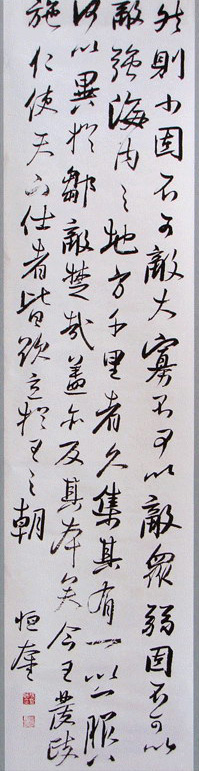 然則小固不可敵大寡不可以敵衆弱固不可以
敵強海内之地方千里者九集其有一以一服八
何以異於鄒敵楚哉蓋亦反其本矣今王發政
施仁使天下仕者皆欲立於王之朝